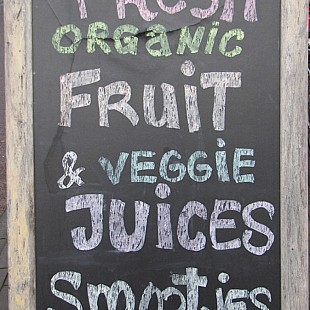 FRESH
ORGANIC
FRUIT
& VEGGIE
JUICES
SMOOTIES